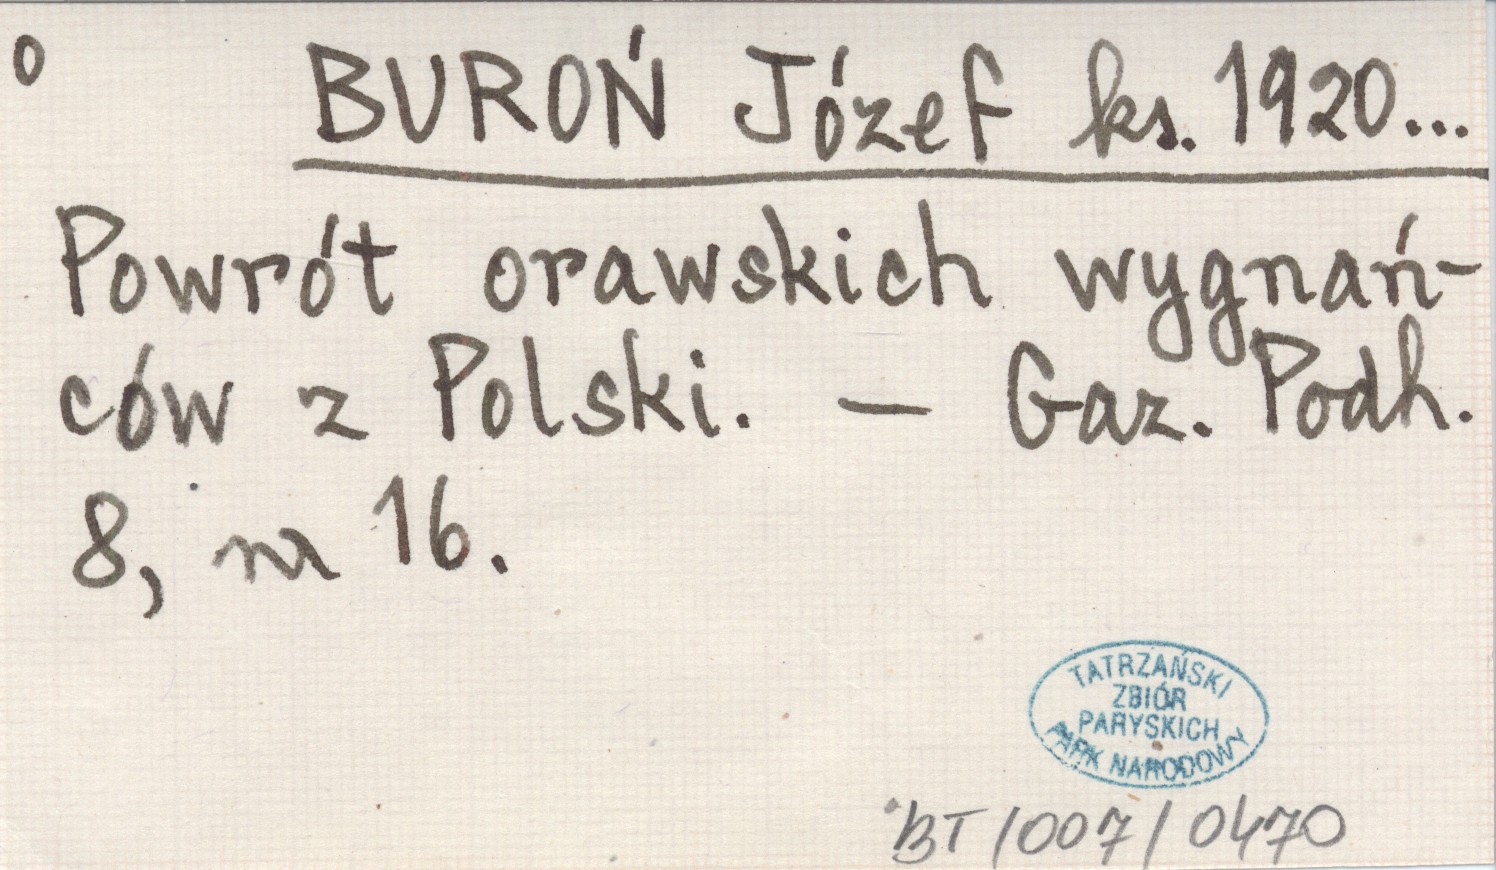 o BUROŃ Józef ks. 1920...
Powrót orawskich wygnań-
ców z Polski. — Gaz. Podh.
8, nr 16.
TATRZAŃSKI
ZBIÓR
PARYSKICH
PARK NARODOWY
BT/007/0470